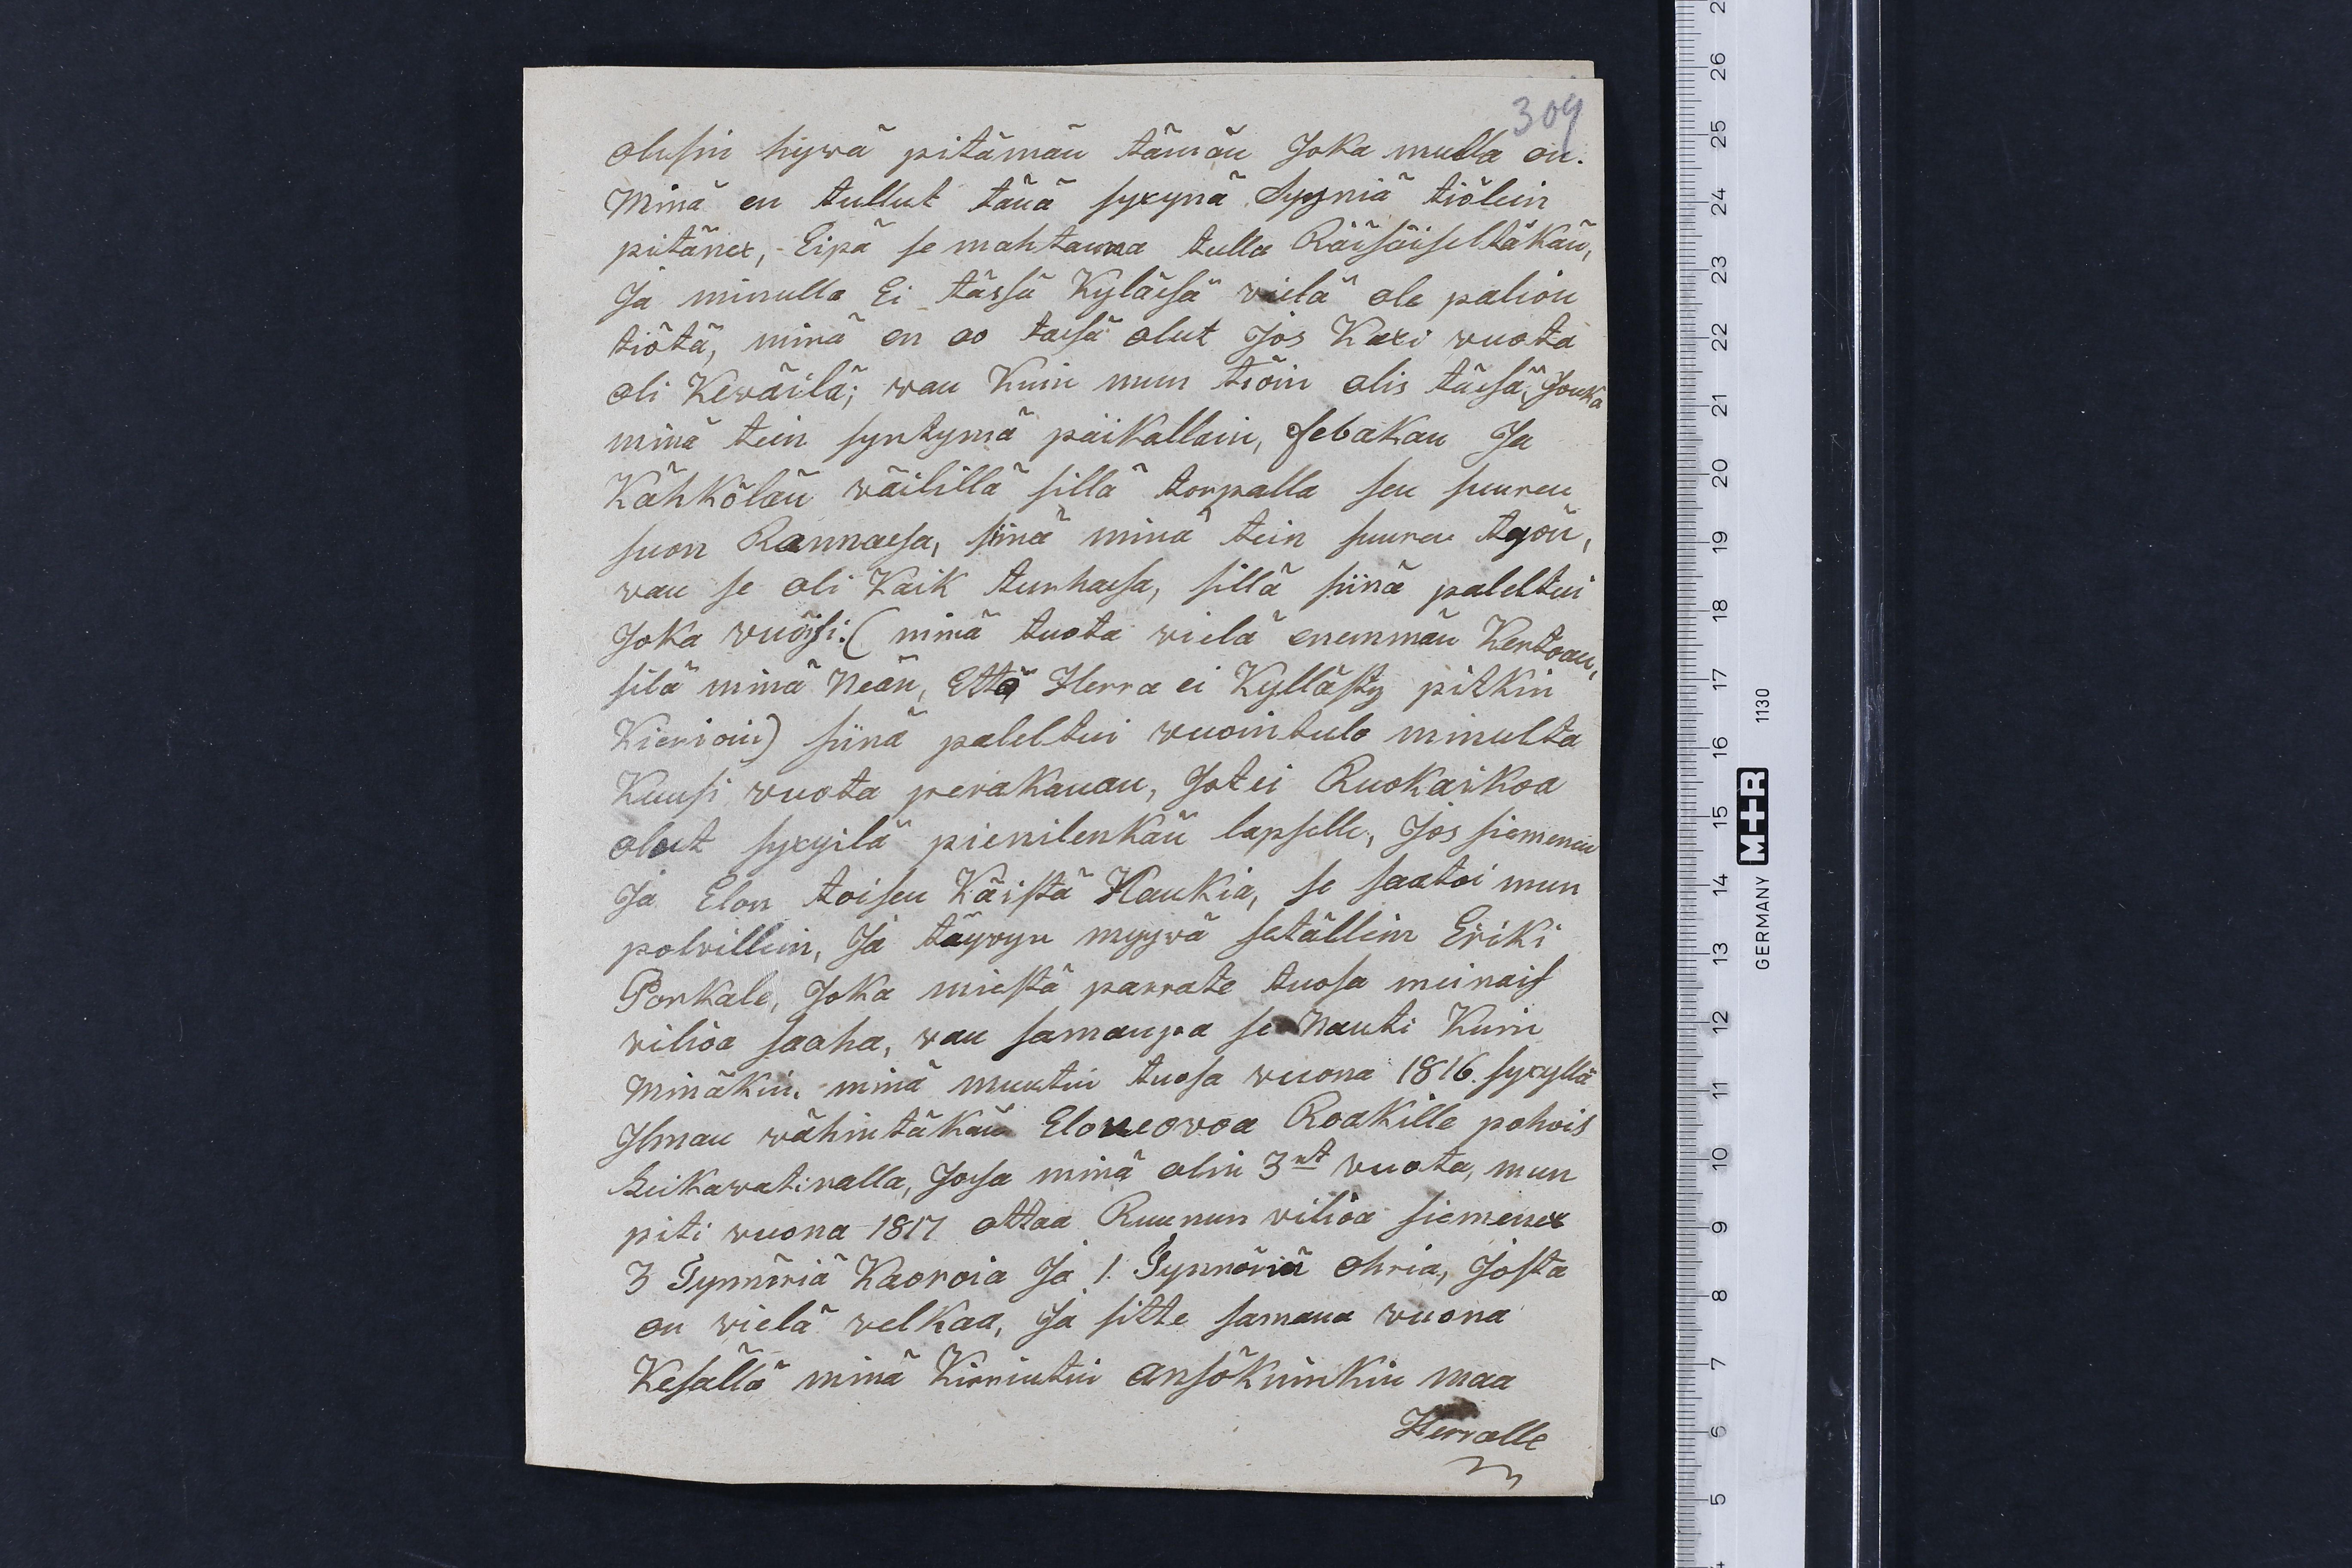 309
olisin hywä pitämän tämän Joka mulla on.
Minä en tullut tänä syxynä Syyniä tiölein
pitänex, Eipä se mahtanna tulla Räisäiseltäkän,
Ja minulla Ei tässä Kyläesä vielä ole palion
tiötä, minä en oo taesä olut Jos Kaxi vuota
oli Kewäilä; wan Kuin mun tiöin olis täesä, Jonka
minä tein syntymä päikallain, Sebakan Ja
Kähkölän wäilillä sillä torpalla sen suuren
suon Rannaesa, siinä minä tein suuren työn,
van se oli Kaik turhaesa, sillä siinä paleltui
Joka vuosi: (minä tuota vielä enemmän Kertoan,
silä minä Neän, Että Herra ei Kyllästy pitkin
Kierioin) siinä paleltui vuointulo minulta
Kuusi vuota peräkanan, Jotei Ruokaikoa
olut syxyilä pienilenkän lapselle, Jos siemenen
Ja Elon toisen Käistä Haukia, se saatoi mun
polvillein, Ja täywyn myywä setällein Eriki
Porkale, Joka miestä parrate tuosa meinais
vilioa saaha, van samanpa se Nauti Kuin
Minäkin. minä muutin tuosa vuona 1816. syxyllä
Ilman wähintäkän Eloneovoa Roakille pohois
Leikawatiralla, Joesa minä olin 3nt vuota, mun
piti vuona 1817 ottaa Ruunun vilioa siemenex
3 Tynnöriä Kaoroia Ja 1. Tynnöriä ohria, Josta
on vielä velkaa, Ja sitte samana vuona
Kesällä minä Kirriutin ansökninkin maa
Herralle